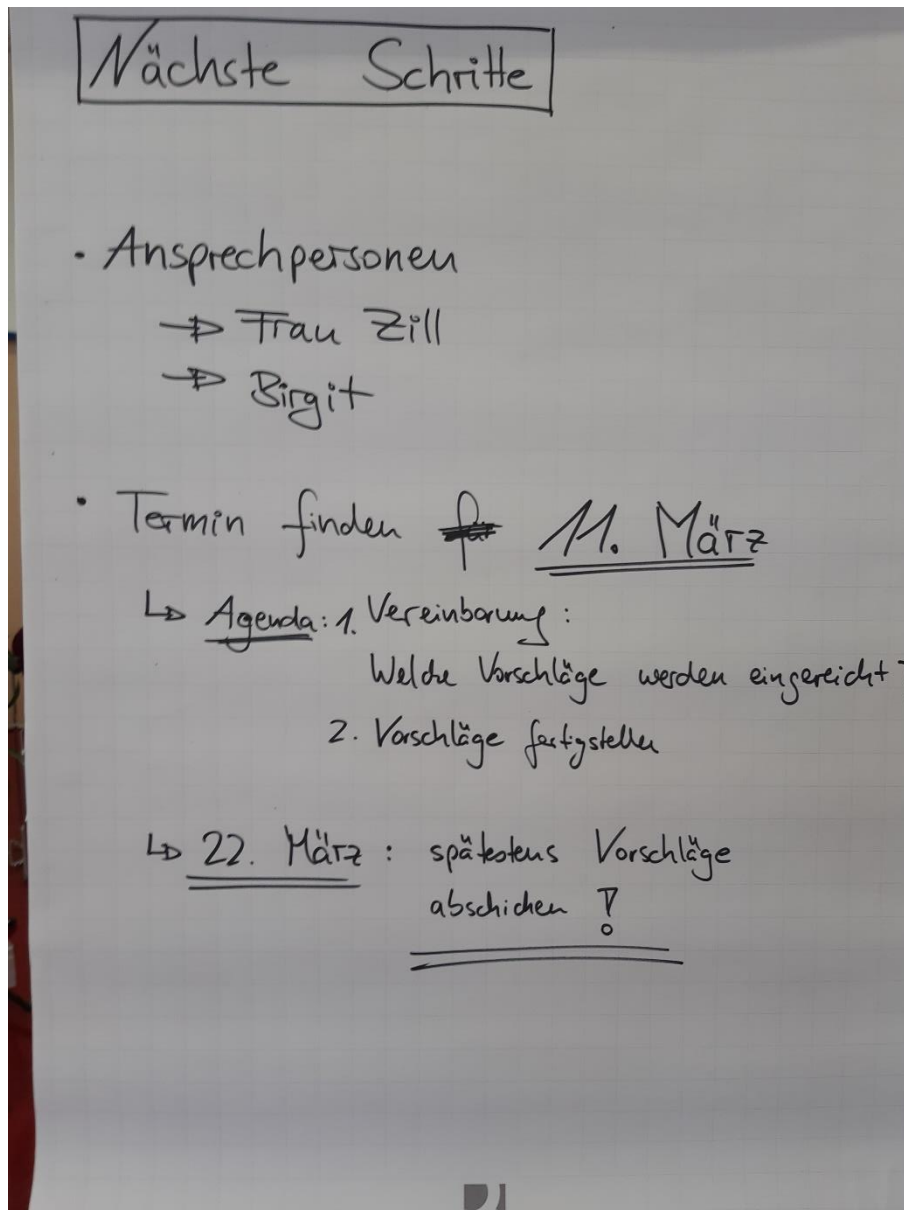 Nächste Schritte
· Ansprechpersonen
→ Frau Zill
→ Birgit
· Termin finden 11. März
↳ Agenda: 1. Vereinbarung:
Welche Vorschläge werden eingereicht
2. Vorschläge fertigstellen
↳ 22. März: spätestens Vorschläge
abschicken !